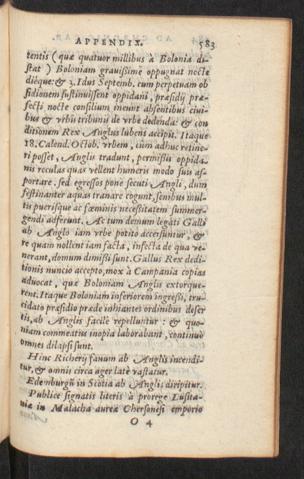 APPENDIX. 583
tentis (quæ quatuor millibus à Bolonia di-
stat) Boloniam grauissime oppugnat nocte
diéque: & 3. Idus Septemb. cum perpetuam ob
sidionem sustinuissent oppidani, præsidij præ-
fecti nocte consilium ineunt absentibus ciui-
bus & vrbis tribunis de vrbe dedenda: & con
ditionem Rex Anglus lubens accipit. Itaque
18. Calend. Octob. vrbem, cùm adhuc retine-
ri posset, Anglis tradunt, permissis oppida-
nis reculas quas vellent humeris modò suis as-
portare. sed egressos pone secuti Angli, dum
festinanter aquas tranare cogunt, senibus mul-
tis puerisque ac fœminis necessitatem summer-
gendi adferunt. Ac tum demum legati Galli
ab Anglo iam vrbe potito accersuntur, &
re quam nollent iam facta, infecta de qua ve-
nerant, domum dimissi sunt. Gallus Rex dedi-
tionis nuncio accepto, mox à Campania copias
aduocat, quæ Boloniam Anglis extorque-
rent. Itaque Boloniam inferiorem ingressi, tru-
cidato præsidio prædæ inhiantes ordinibus deser
tis, ab Anglis facilè repelluntur: & quo-
niam commeatus inopia laborabant, continuò
omnes dilapsi sunt.
Hinc Richerij fanum ab Anglis incendi-
tur, & omnis circa ager latè vastatur.
Edemburgũ in Scotia ab Anglis diripitur.
Publicè signatis literis à prorege Lusita-
nia in Malacha aureæ Chersonesi emporio
O 4